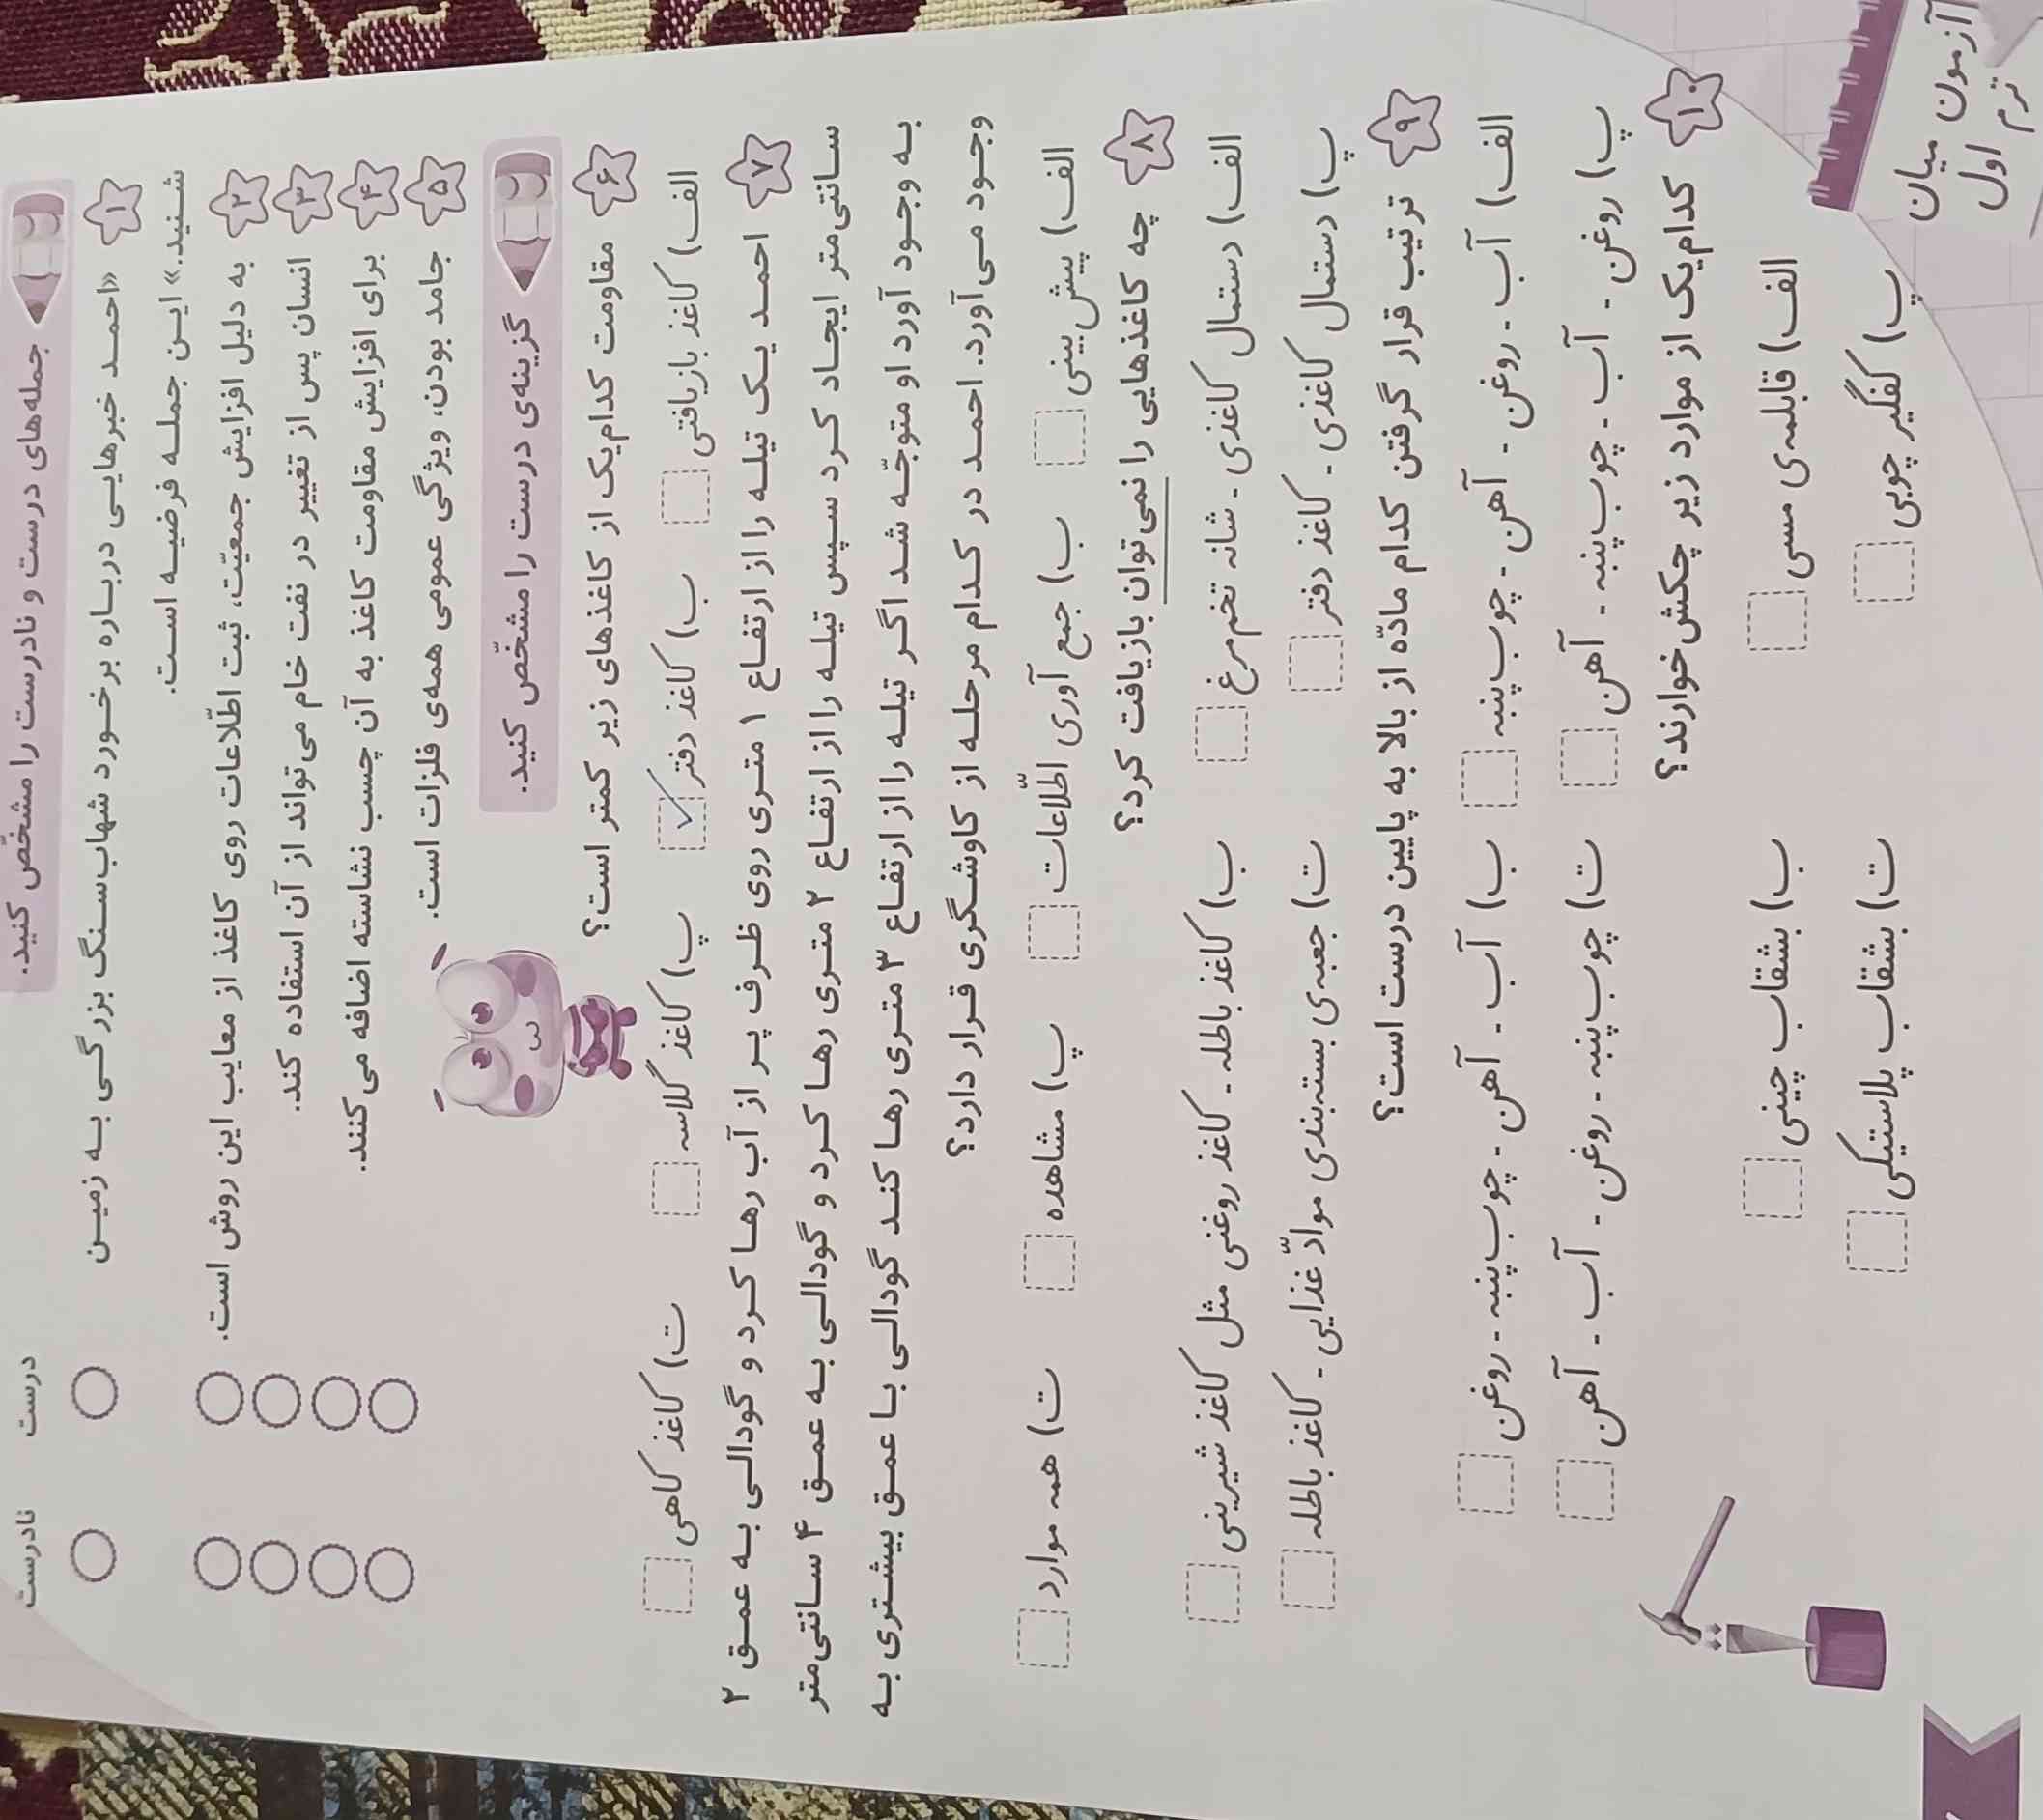 جمله‌های درست و نادرست را مشخّص کنید.
درست
نادرست
۱ «احمد خبرهایی درباره برخورد شهاب‌سنگ بزرگی به زمین
شنید.» این جمله فرضیه است.
۲ به دلیل افزایش جمعیّت، ثبت اطّلاعات روی کاغذ از معایب این روش است.
۳ انسان پس از تغییر در نفت خام می‌تواند از آن استفاده کند.
۴ برای افزایش مقاومت کاغذ به آن چسب نشاسته اضافه می‌کنند.
۵ جامد بودن، ویژگی عمومی همه‌ی فلزات است.
گزینه‌ی درست را مشخّص کنید.
۶ مقاومت کدام‌یک از کاغذهای زیر کمتر است؟
الف) کاغذ بازیافتی ب) کاغذ دفتر ✓ پ) کاغذ گلاسه ت) کاغذ کاهی
۷ احمد یک تیله را از ارتفاع ۱ متری روی ظرف پر از آب رها کرد و گودالی به عمق ۲
سانتی‌متر ایجاد کرد سپس تیله را از ارتفاع ۲ متری رها کرد و گودالی به عمق ۴ سانتی‌متر
به وجود آورد او متوجّه شد اگر تیله را از ارتفاع ۳ متری رها کند گودالی با عمق بیشتری به
وجود می‌آورد. احمد در کدام مرحله از کاوشگری قرار دارد؟
الف) پیش‌بینی ب) جمع آوری اطّلاعات پ) مشاهده ت) همه موارد
۸ چه کاغذهایی را نمی‌توان بازیافت کرد؟
الف) دستمال کاغذی - شانه تخم‌مرغ ب) کاغذ باطله - کاغذ روغنی مثل کاغذ شیرینی
پ) دستمال کاغذی - کاغذ دفتر ت) جعبه‌ی بسته‌بندی موادّ غذایی - کاغذ باطله
۹ ترتیب قرار گرفتن کدام مادّه از بالا به پایین درست است؟
الف) آب - روغن - آهن - چوب‌پنبه ب) آب - آهن - چوب‌پنبه - روغن
پ) روغن - آب - چوب‌پنبه - آهن ت) چوب‌پنبه - روغن - آب - آهن
۱۰ کدام‌یک از موارد زیر چکش‌خوارند؟
الف) قابلمه‌ی مسی ب) بشقاب چینی
پ) کفگیر چوبی ت) بشقاب پلاستیکی
آزمون میان
ترم اول